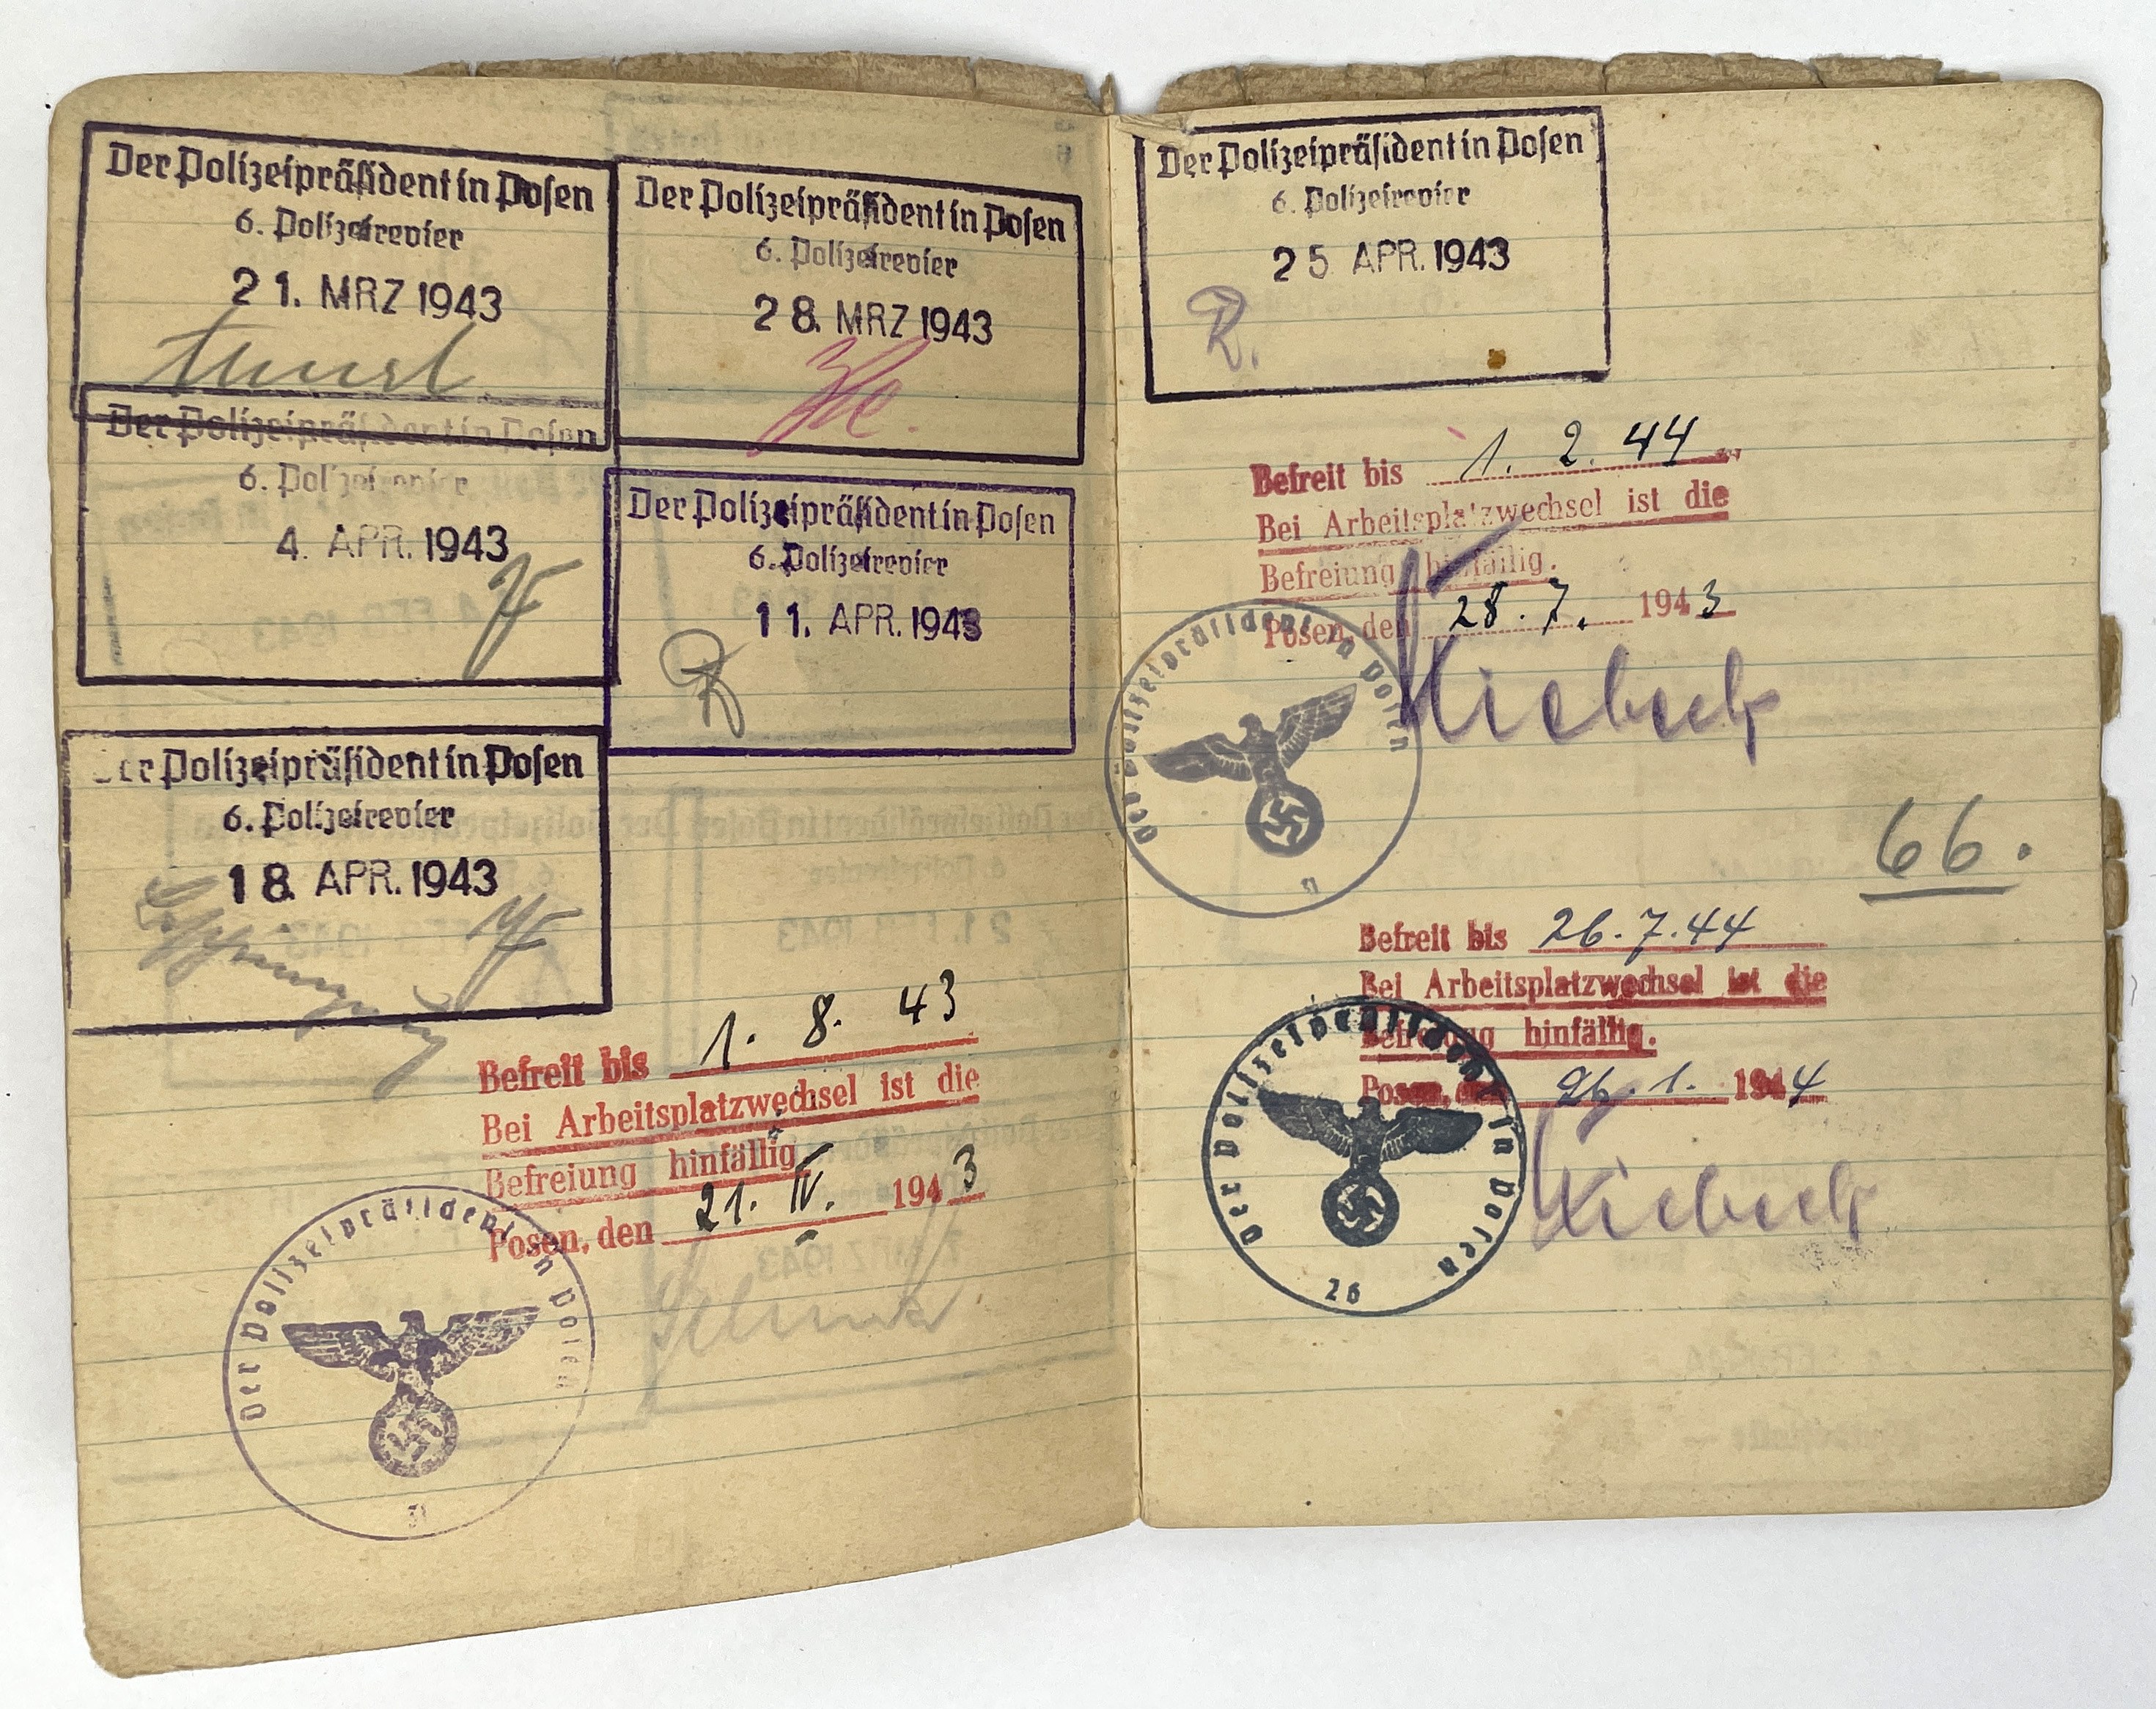 Der Polizeipräsident in Posen
6. Polizeirevier
21. MRZ 1943
Der Polizeipräsident in Posen
6. Polizeirevier
28. MRZ 1943
Der Polizeipräsident in Posen
6. Polizeirevier
4. APR. 1943
Der Polizeipräsident in Posen
6. Polizeirevier
11. APR. 1943
R
Der Polizeipräsident in Posen
6. Polizeirevier
18. APR. 1943
Befreit bis 1. 8. 43
Bei Arbeitsplatzwechsel ist die
Befreiung hinfällig.
Posen, den 21. IV. 1943
Der Polizeipräsident in Posen
31
Der Polizeipräsident in Posen
6. Polizeirevier
25 APR. 1943
R.
Befreit bis 1. 2. 44
Bei Arbeitsplatzwechsel ist die
Befreiung hinfällig.
Posen, den 28. 7. 1943
Der Polizeipräsident in Posen
66.
Befreit bis 26. 7. 44
Bei Arbeitsplatzwechsel ist die
Befreiung hinfällig.
Posen, den 26. 1. 1944
Der Polizeipräsident in Posen
26